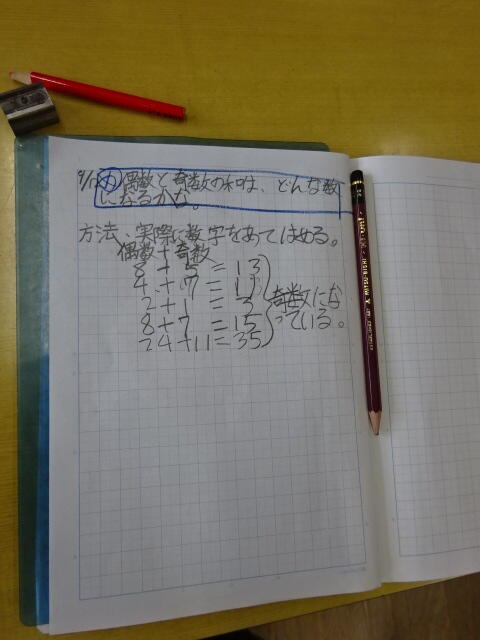 9/12 め 偶数と奇数の和は、どんな数
になるかな。
方法、実際に数字をあてはめる。
偶数+奇数
8+5=13
4+7=11
2+1=3
8+7=15
24+11=35
奇数にな
っている。